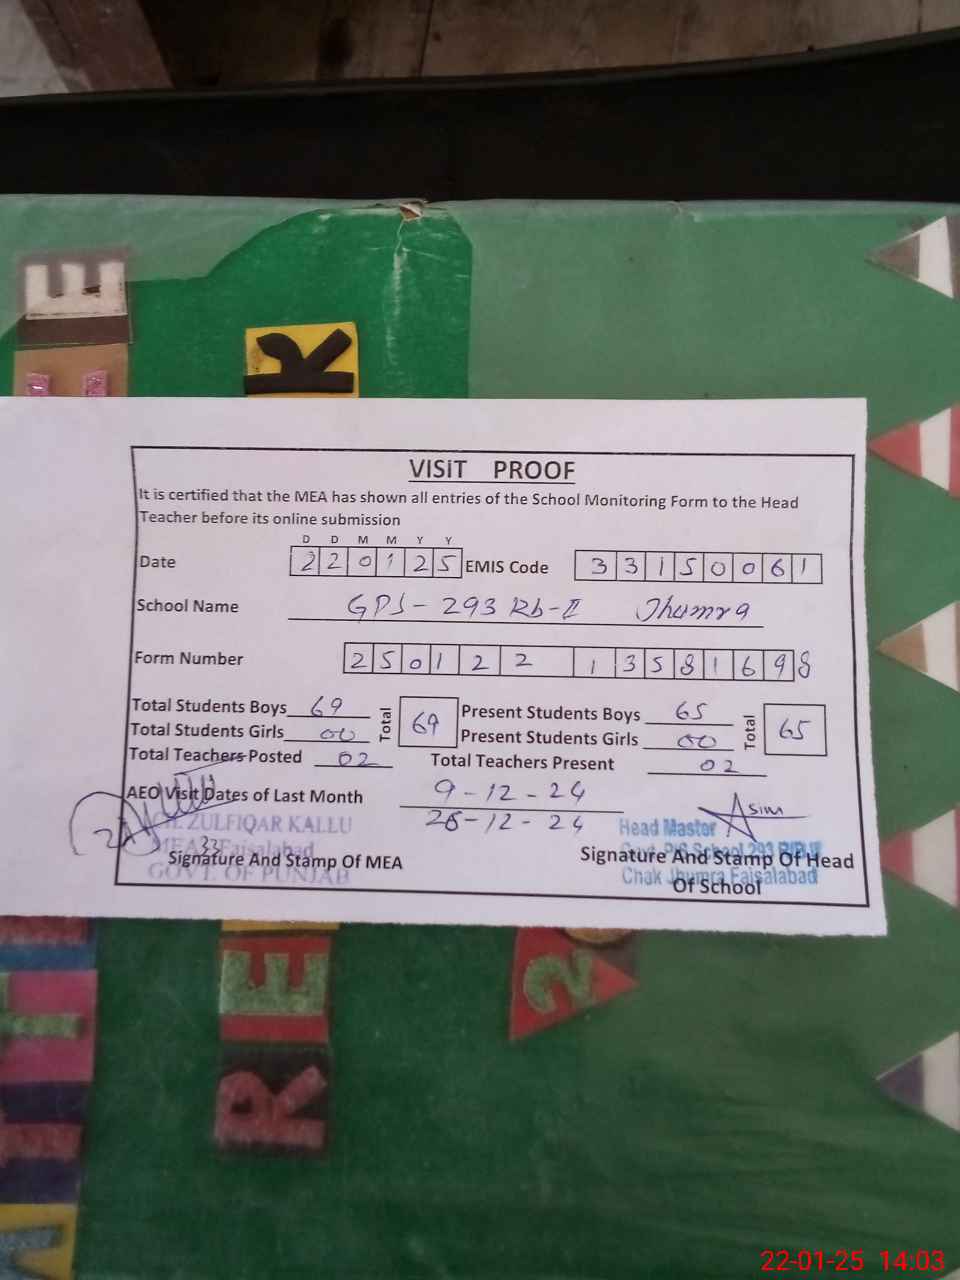 E
R
VISIT PROOF
It is certified that the MEA has shown all entries of the School Monitoring Form to the Head
Teacher before its online submission
D D M M Y Y
Date 220125 EMIS Code 33150061
School Name GPS-293 Rb-II Jhumra
Form Number 250122 13581698
Total Students Boys 69 Total 69 Present Students Boys 65 Total 65
Total Students Girls 00 Present Students Girls 00
Total Teachers Posted 02 Total Teachers Present 02
AEO Visit Dates of Last Month 9-12-24
26-12-24
Asim
ZULFIQAR KALLU
MEA 33 Faisalabad
GOVT. OF PUNJAB
Signature And Stamp Of MEA
Head Master
School 293
Chak Jhumra Faisalabad
Signature And Stamp Of Head
Of School
E
R
2
22-01-25 14:03